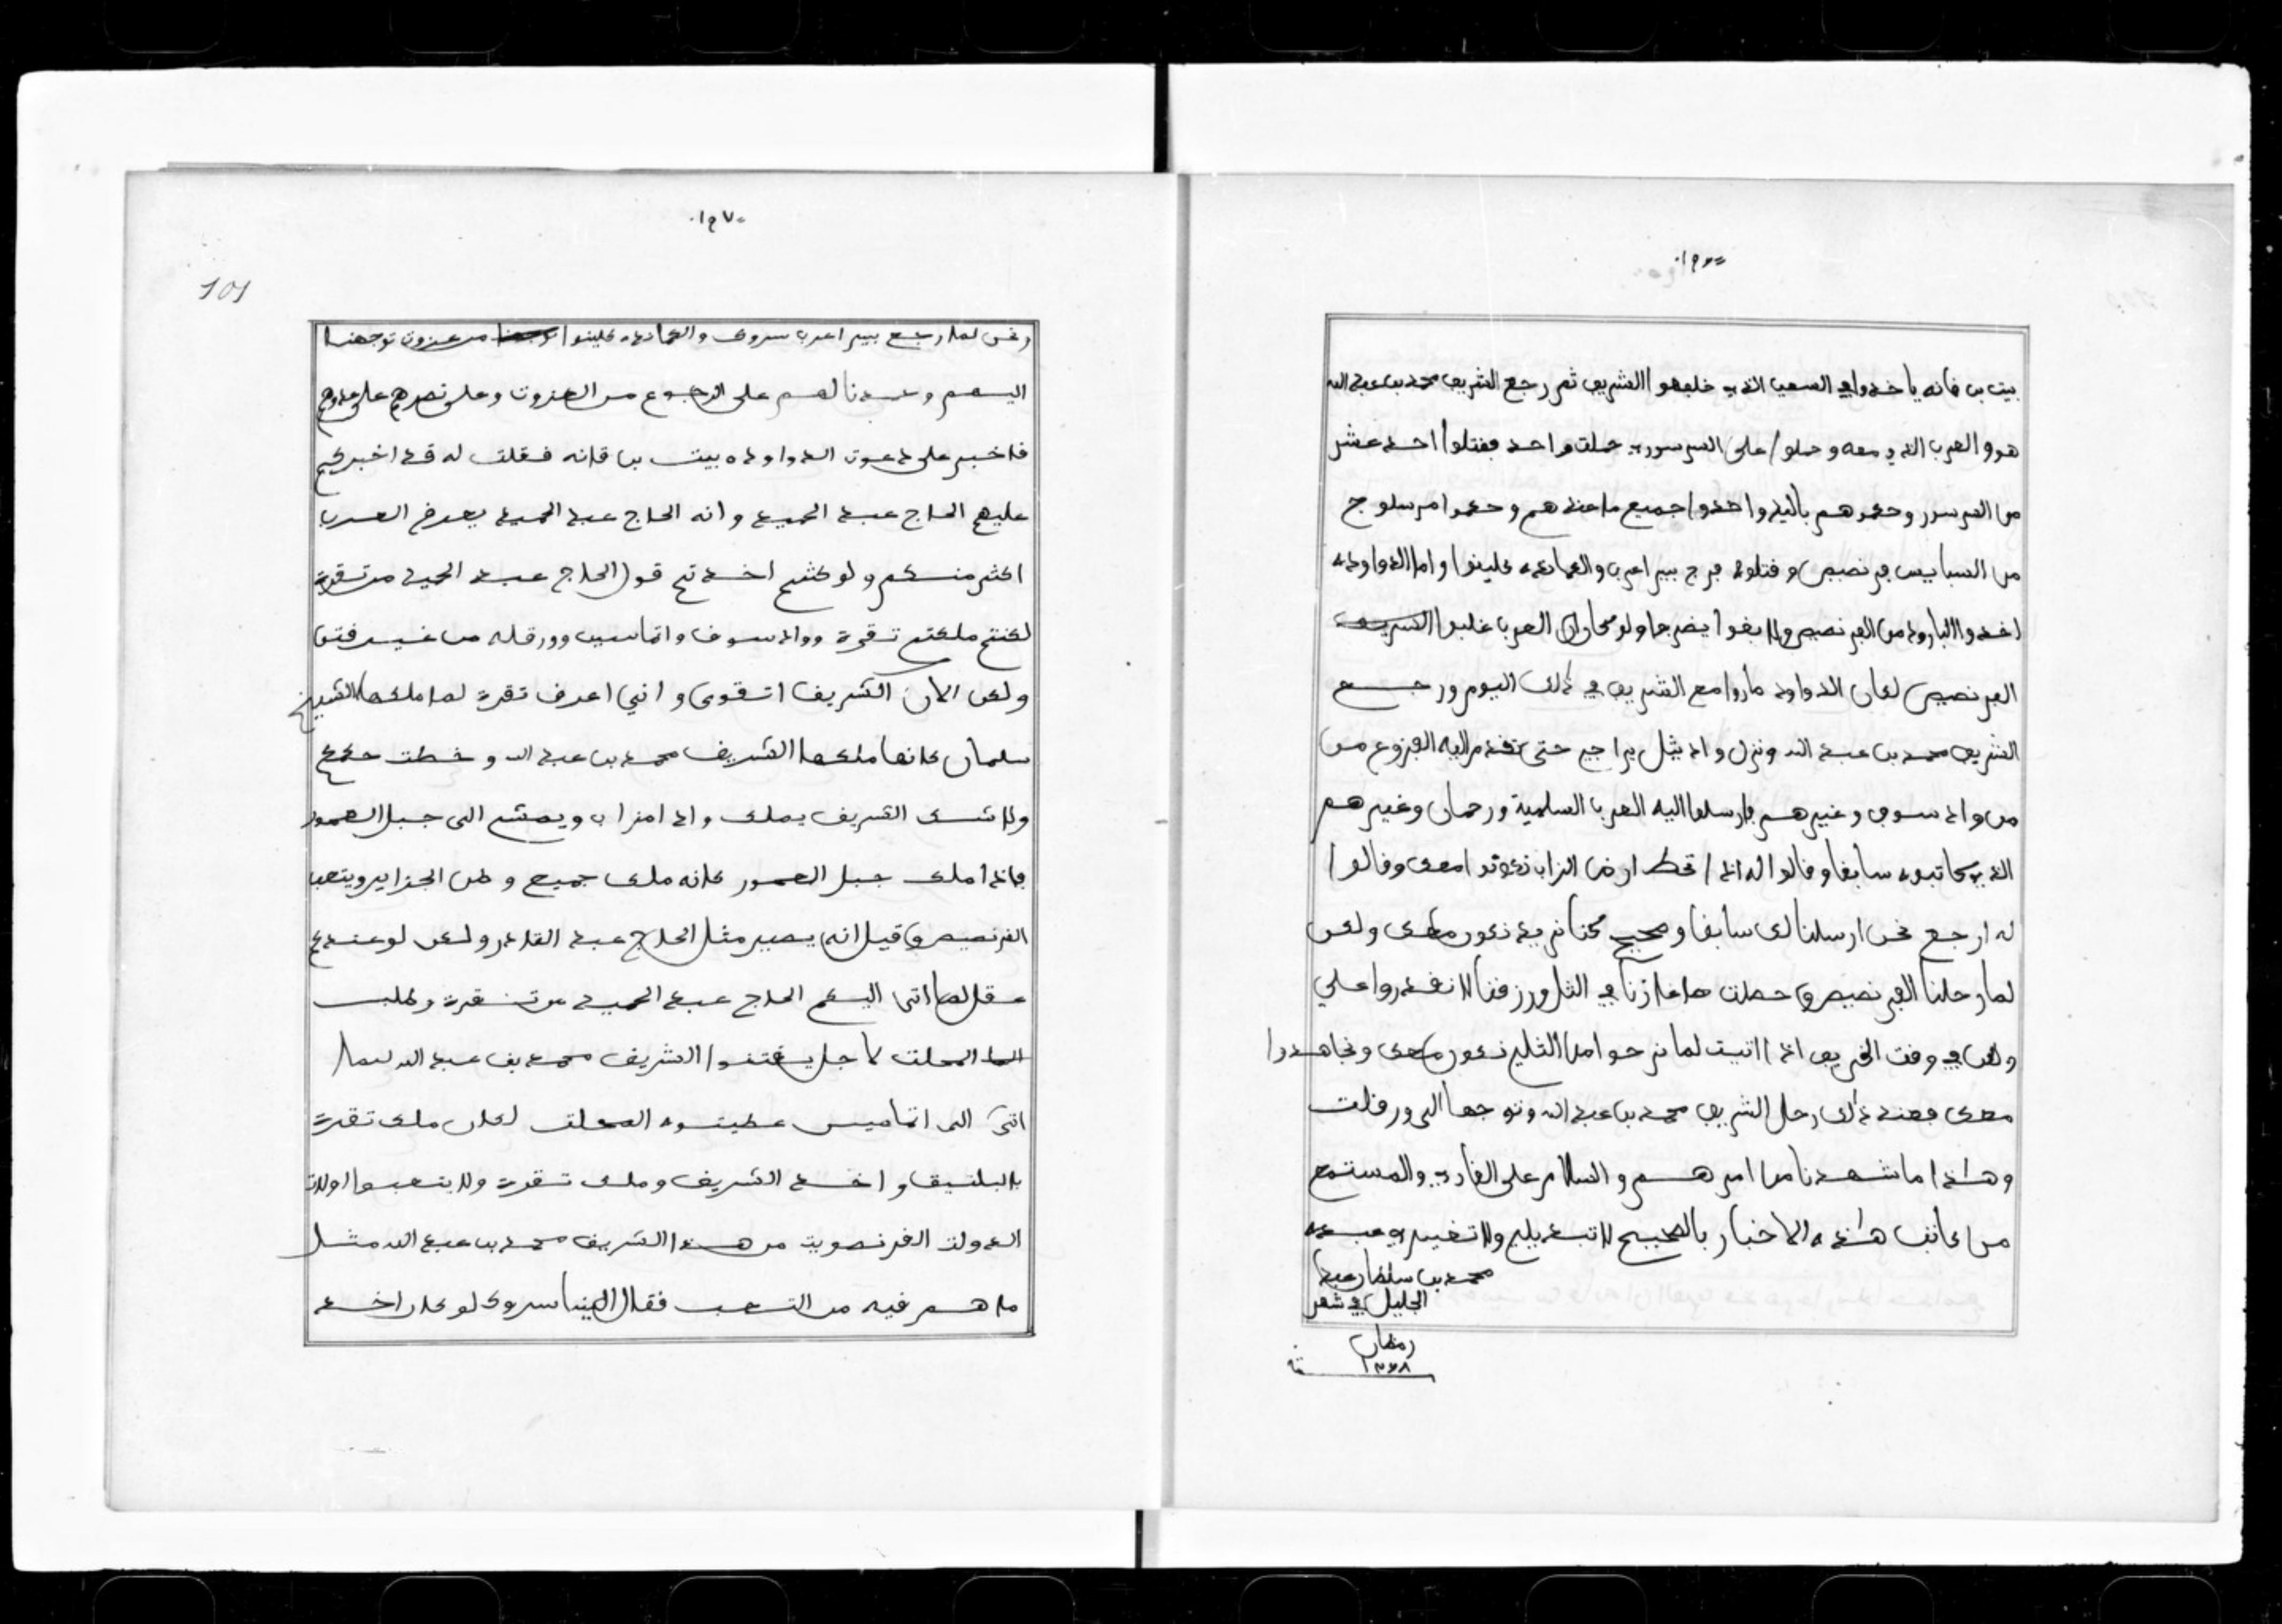 ١٢٦٠
بيت بن قانه ياخذوا في السعب الذي خلفهوا الشريف ثم رجع الشريف محمد بن عبد الله
هو والعرب الذي معه وحملوا على السرسور حملت واحد فقتلوا احد عشر
من السرسور وحكموهم باليد واخذوا جميع ما عندهم وحكموا مرسلوج
من السبايس فرنصيص وقتلوه فرج ببير اعرب والعمادة علينوا واما الدواوده
اخذوا البارود من الفرنصيص ولا بغوا يضربوا ولو كان العرب غلبوا الشريف
الفرنصيص لكان الدواوده داروا مع الشريف في ذلك اليوم ورجع
الشريف محمد بن عبد الله ونزل واد يثل يراجي حتى تقدم اليه الفزوع من
من واد سوف وغيرهم فارسلوا اليه العرب السلمية ورحمان وغيرهم
الذي كاتبوه سابقا وقالوا له اذا تحط ارض الزاب نكونوا معك وقالوا
له ارجع نحن ارسلنا لك سابقا وصحيح كنا نريد نكون معك ولكن
لما رحلنا الفرنصيص وحصلت دغارنا في الثل ورزقنا لا نقدروا على
ولكن في وقت الخريف اذا اتيت لما نرحوا من الثل نكون معك ونجاهدوا
معك فعند ذلك رحل الشريف محمد بن عبد الله وتوجها الى ورقلت
وهذا ما شهدنا من امرهم والسلام على القاري والمستمع
من كاتب هذه الاخبار بالصحيح لا تبديل ولا تغيير عبده
محمد بن سلطان عبد
الجليل في شهر
رمضان
١٢٦٨
سنة
١٢٧٠
101
ونحن لما رجع ببير اعرب سروك والعمادة علينوا من عزوت توجهنا
اليهم وهدنا لهم على الرجوع من العزوت وعلى نصرهم على عدوهم
فاخبر على دعوت الدواوده بيت بن قانه فقلت له قد اخبركم
عليهم الحاج عبد الحميد وانه الحاج عبد الحميد يعرف العرب
اكثر منكم ولو كنتم اخذتم قول الحاج عبد الحميد من تقرت
لكنتم ملكتم تقرة وواد سوف واتماسين وورقله من غير فتن
ولكن الان الشريف اتقوى واني اعرف تقرة لما ملكها الشيخ
سلمان كانها ملكها الشريف محمد بن عبد الله وخطت حكمكم
ولا شك الشريف يملك واد امزاب ويمشي الى جبل العمور
فاذا ملك جبل العمور كانه ملك جميع وطن الجزاير ويتعب
الفرنصيص وقيل انه يصير مثل الحاج عبد القادر ولكن لو عندكم
عقل لما اتى اليكم الحاج عبد الحميد من تقرة وطلب
المحلت لاجل يفتنوا الشريف محمد بن عبد الله لما
اتى الى اتماسين عطيتوه المحلت لكان ملك تقرة
بالبلتيق واخذ الشريف وملك تقرة ولا يتعبوا اولات
الدولت الفرنصويت من هذا الشريف محمد بن عبد الله مثل
ما هم فيه من التعب فقال الينا سروك لو كان اخذ